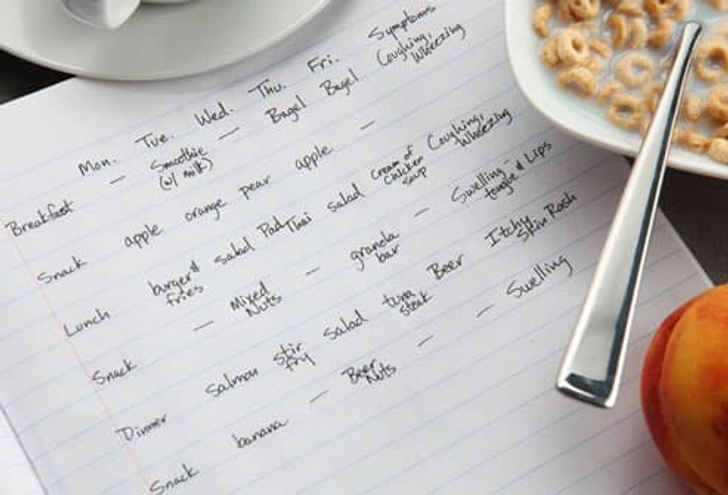 Mon. Tue. Wed. Thu. Fri. Symptoms
Breakfast — Smoothie (w/ milk) — Bagel Bagel Coughing, Wheezing
Snack apple orange pear apple —
Lunch burger & fries salad Pad Thai salad Cream of Chicken soup Coughing, Wheezing
Snack — Mixed Nuts — granola bar — Swelling - tongue & Lips
Dinner Salmon stir fry salad tuna steak Beer Itchy Skin Rash
Snack banana — Beer Nuts — — Swelling